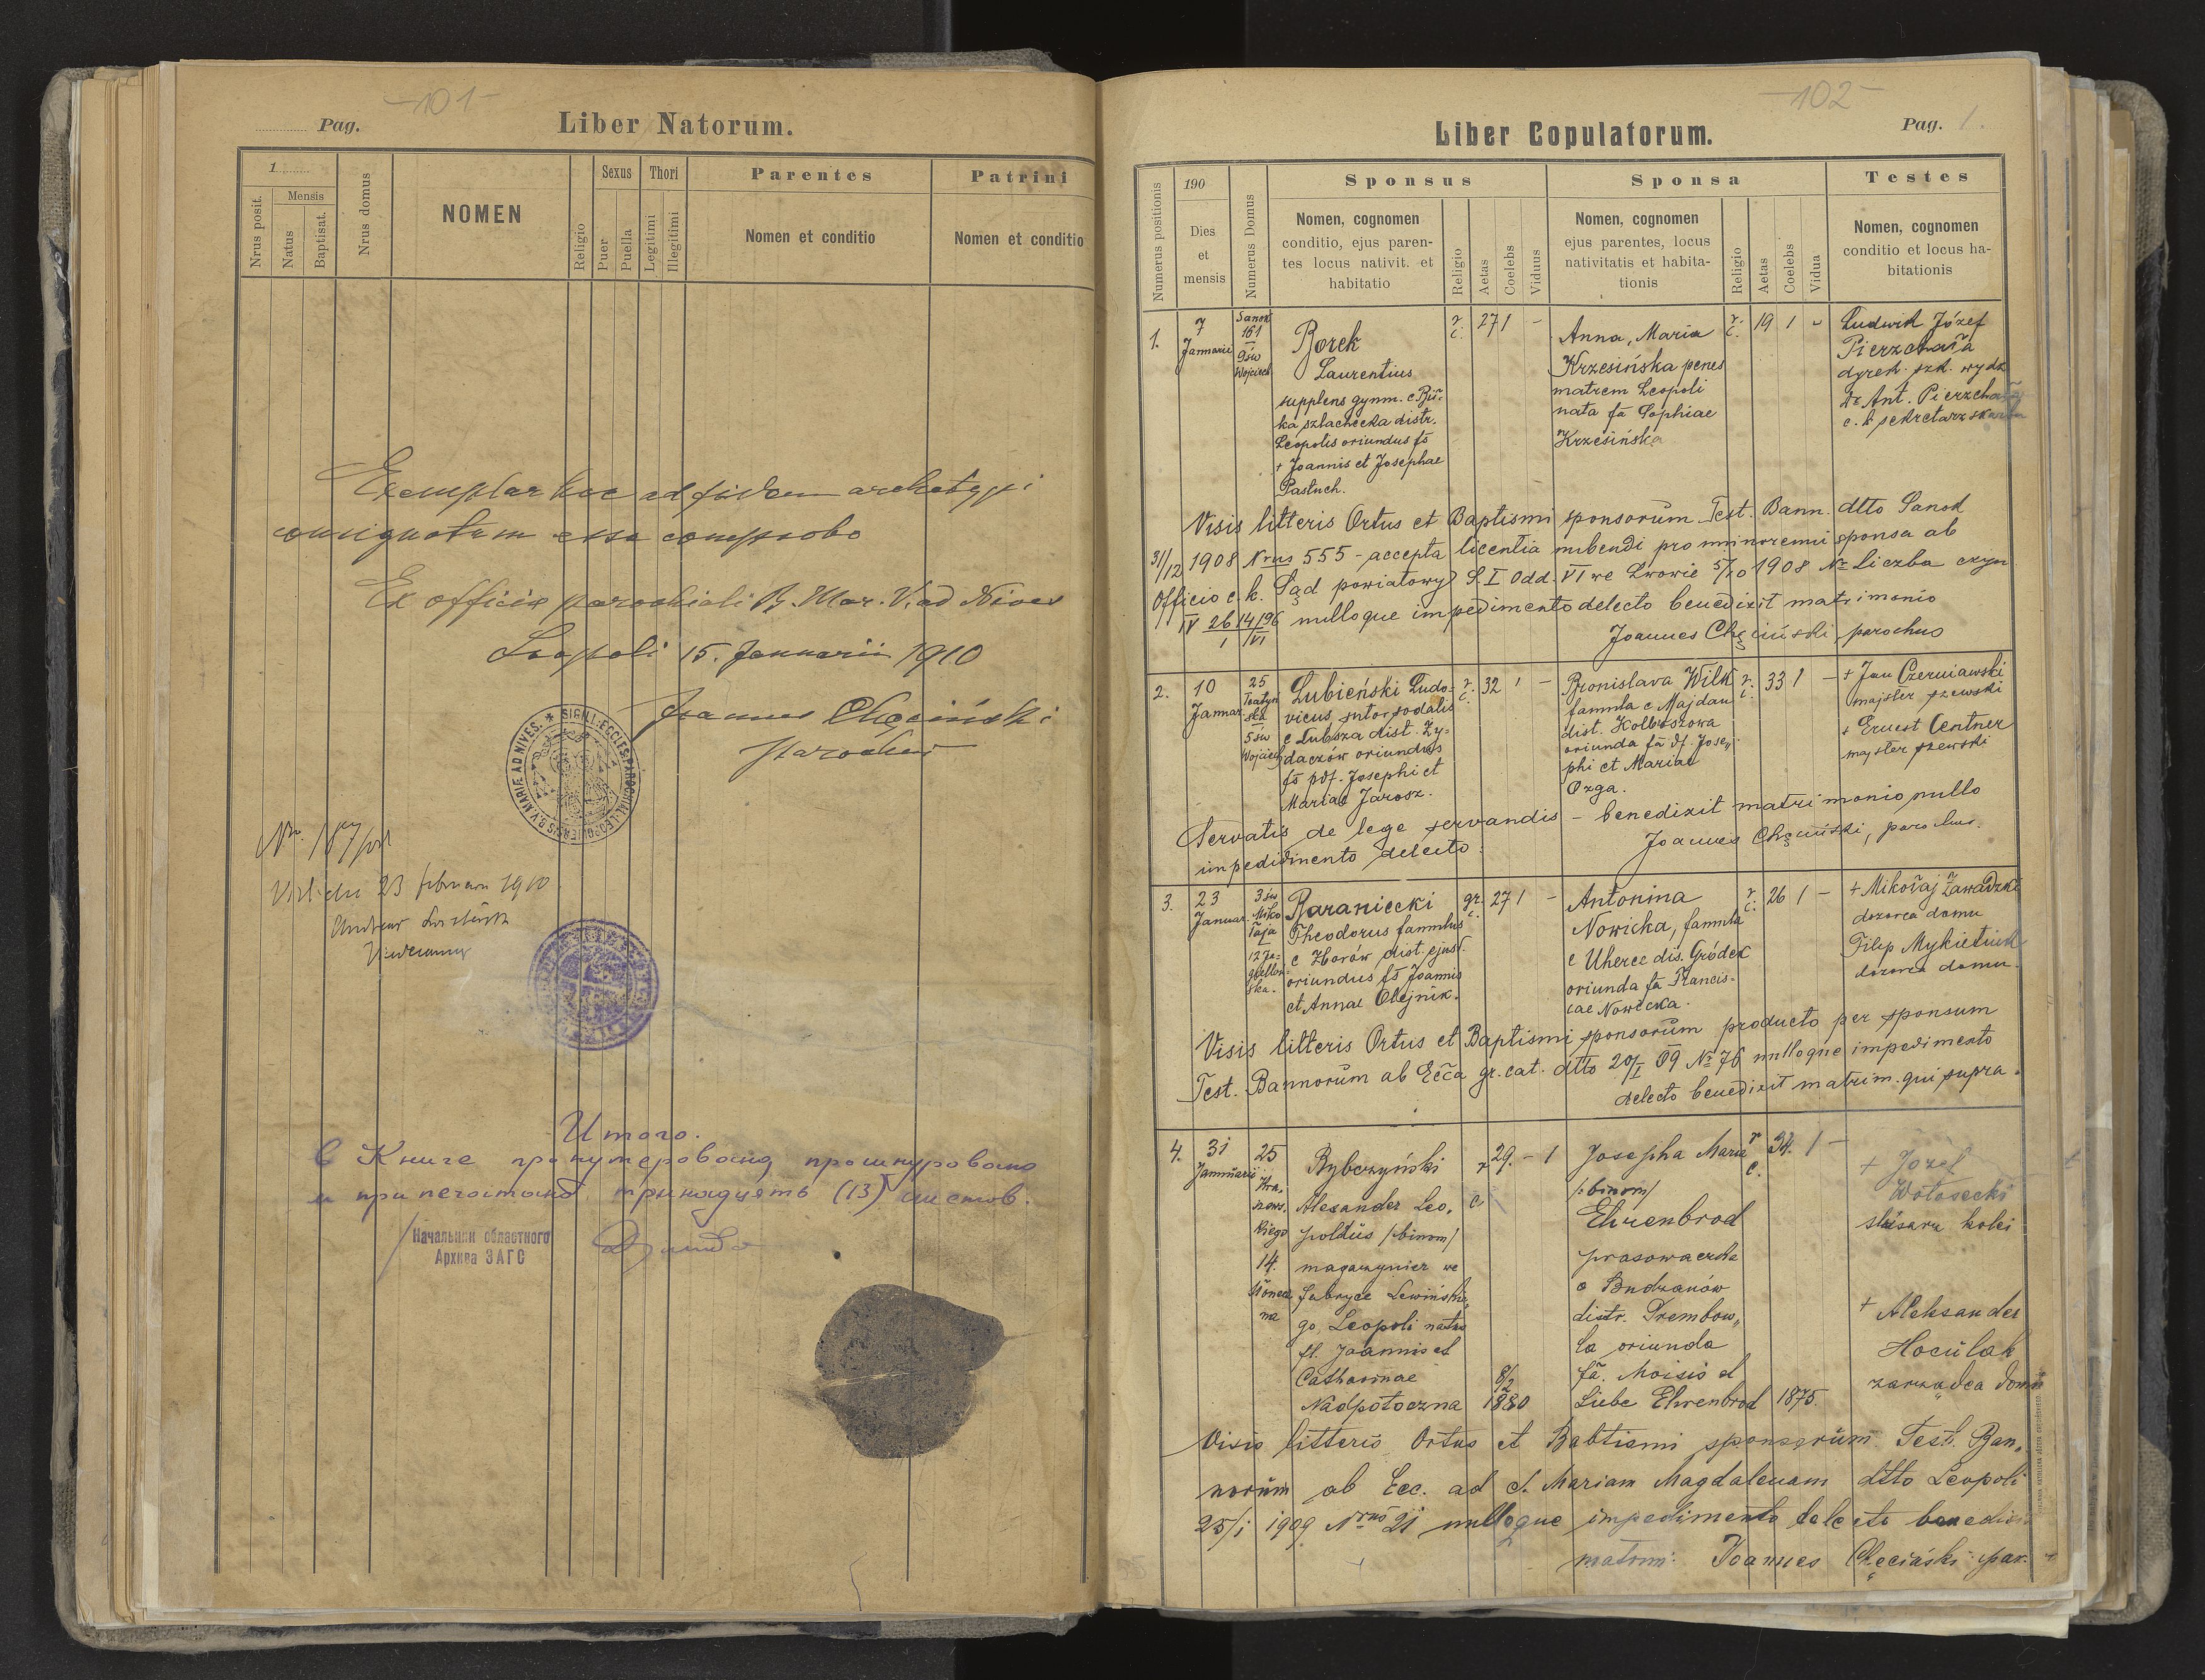 -101-
Pag.
Liber Natorum.
1
Nrus posit.
Mensis
Natus
Baptisat.
Nrus domus
NOMEN
Religio
Sexus
Puer
Puella
Thori
Legitimi
Illegitimi
Parentes
Nomen et conditio
Patrini
Nomen et conditio
Exemplar hoc ad fidem archetypi
consignatum esse comprobo
Ex officio parochiali B. Mar. V. ad Nives
Leopoli 15. Januarii 1910
Joannes Chęciński
parochus
SIGILL. ECCLES. PAROCHIAL. LEOPOLIENSIS B.V. MARIÆ AD NIVES.
23 februarii 1910
Итого.
В Книге пронумеровано, прошнуровано
и припечатано тринадцать (13) листов.
Начальник областного
Архива ЗАГС
-102-
Liber Copulatorum.
Pag. 1.
Numerus positionis
190
Dies
et
mensis
Numerus Domus
Sponsus
Nomen, cognomen
conditio, ejus paren-
tes locus nativit. et
habitatio
Religio
Aetas
Coelebs
Viduus
Sponsa
Nomen, cognomen
ejus parentes, locus
nativitatis et habita-
tionis
Religio
Aetas
Coelebs
Vidua
Testes
Nomen, cognomen
conditio et locus ha-
bitationis
1.
7
Januarii
Sanok
161
9 św
Wojciech
Borek
Laurentius
supplens gymn. e Rji-
ka szlachecka distr.
Leopolis oriundus fs
+ Joannis et Josephae
Pastuch.
r. c.
27 1 -
Anna, Maria
Krzesińska penes
matrem Leopoli
nata fa Sophiae
Krzesińska
r. c.
19 1 -
Ludwik Józef
Pierzchała
dyrek. szk. wydz
Dr Ant. Pierzchała
c. k sekretarz skarbu
Visis litteris Ortus et Baptismi sponsorum Test. Bann. dtto Sanok
31/12 1908 Nrus 555 - accepta licentia nubendi pro minorenni sponsa ab
Officio c. k. Sąd powiatowy S. I Odd. VI we Lwowie 5/10 1908 No Liczba czyn
IV 26/1 14/VI 96 nulloque impedimento detecto benedixit matrimonio
Joannes Chęciński parochus
2.
10
Januar.
25
Teatyń
ska
5 św
Wojciech
Łubieński Ludo-
vicus, sutor sodalis
e Łubsza dist. Ży-
daczów oriundus
fs pdf. Josephi et
Mariae Jarosz.
r. c.
32 1 -
Bronislava Wilk
famula e Majdan
dist. Kolbuszowa
oriunda fa df. Jose„
phi et Mariae
Ozga.
r. c.
33 1 -
+ Jan Czerniawski
majster szewski
+ Ernest Centner
majster szewski
Servatis de lege servandis - benedixit matrimonio nullo
impedimento detecto.
Joannes Chęciński, parochus.
3.
23
Januar.
3 św
Miko
łaja
12 Ja-
gielloń-
ska.
Baraniecki
Theodorus famulus
e Zborów dist. ejusd.
oriundus fs Joannis
et Annae Olejnik.
gr. c.
27 1 -
Antonina
Nowicka, famula
e Uherce dis. Gródek
oriunda fa Francis-
cae Nowicka.
r. c.
26 1 -
+ Mikołaj Zawadzki
dozorca domu
Filip Mykietiuk
dozorca domu.
Visis litteris Ortus et Baptismi sponsorum producto per sponsum
Test. Bannorum ab Ecca gr. cat. dtto 20/I 09 No 76 nulloque impedimento
detecto benedixit matrim. qui supra.
4.
31
Januarii
25
Kra,
szews.
kiego
14.
Słonecz
na
Rybczyński
Alexander Leo,
poldus /binom/
magazynier we
fabryce Lewińskie„
go, Leopoli natus
fl. Joannis et
Catharinae
Nadpotoczna
r c
29. - 1
8/2
1880
Josepha Maria
/:binom/
Ehrenbrod
prasowaczka
e Budzanów
distr. Trembow„
la oriunda
fa. Moisis et
Liebe Ehrenbrod
r c.
34. 1 -
1875.
+ Józef
Wołosecki
ślusarz kolei
+ Aleksander
Hoculak
zarządca domu
Visis litteris Ortus et Babtismi sponsorum Test. Ban„
norum ab Ecc. ad S. Mariam Magdalenam dtto Leopoli
25/I 1909 Nrus 21 nulloque impedimento detecto benedixit
matrim: Joannes Chęciński par.